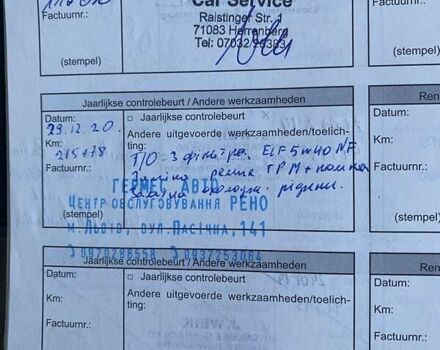 Factuurnr.:
Car Service
Raistinger Str. 1
71083 Herrenberg
Tel: 07032/26383
(stempel)
(stempel)
Jaarlijkse controlebeurt / Andere werkzaamheden
Ren
Datum:
29.12.20.
□ Jaarlijkse controlebeurt
Datum:
Km:
215178
Andere uitgevoerde werkzaamheden/toelich-
ting:
Km:
Т/О - 3 фільтра. ELF 5w40 NF
Factuurnr.:
Заміна ременя ГРМ + помпа
Factuurnr.:
Заміна охолодж. рідини.
ГЕРМЕС АВТО
ЦЕНТР ОБСЛУГОВУВАННЯ РЕНО
м. Львів, вул. Пасічна, 141
(stempel)
0970286558
0937253064
(stempel)
Jaarlijkse controlebeurt / Andere werkzaamheden
Ren
Datum:
□ Jaarlijkse controlebeurt
Datum:
Km:
Andere uitgevoerde werkzaamheden/toelich-
ting:
Km:
Factuurnr.:
Factuurnr.: